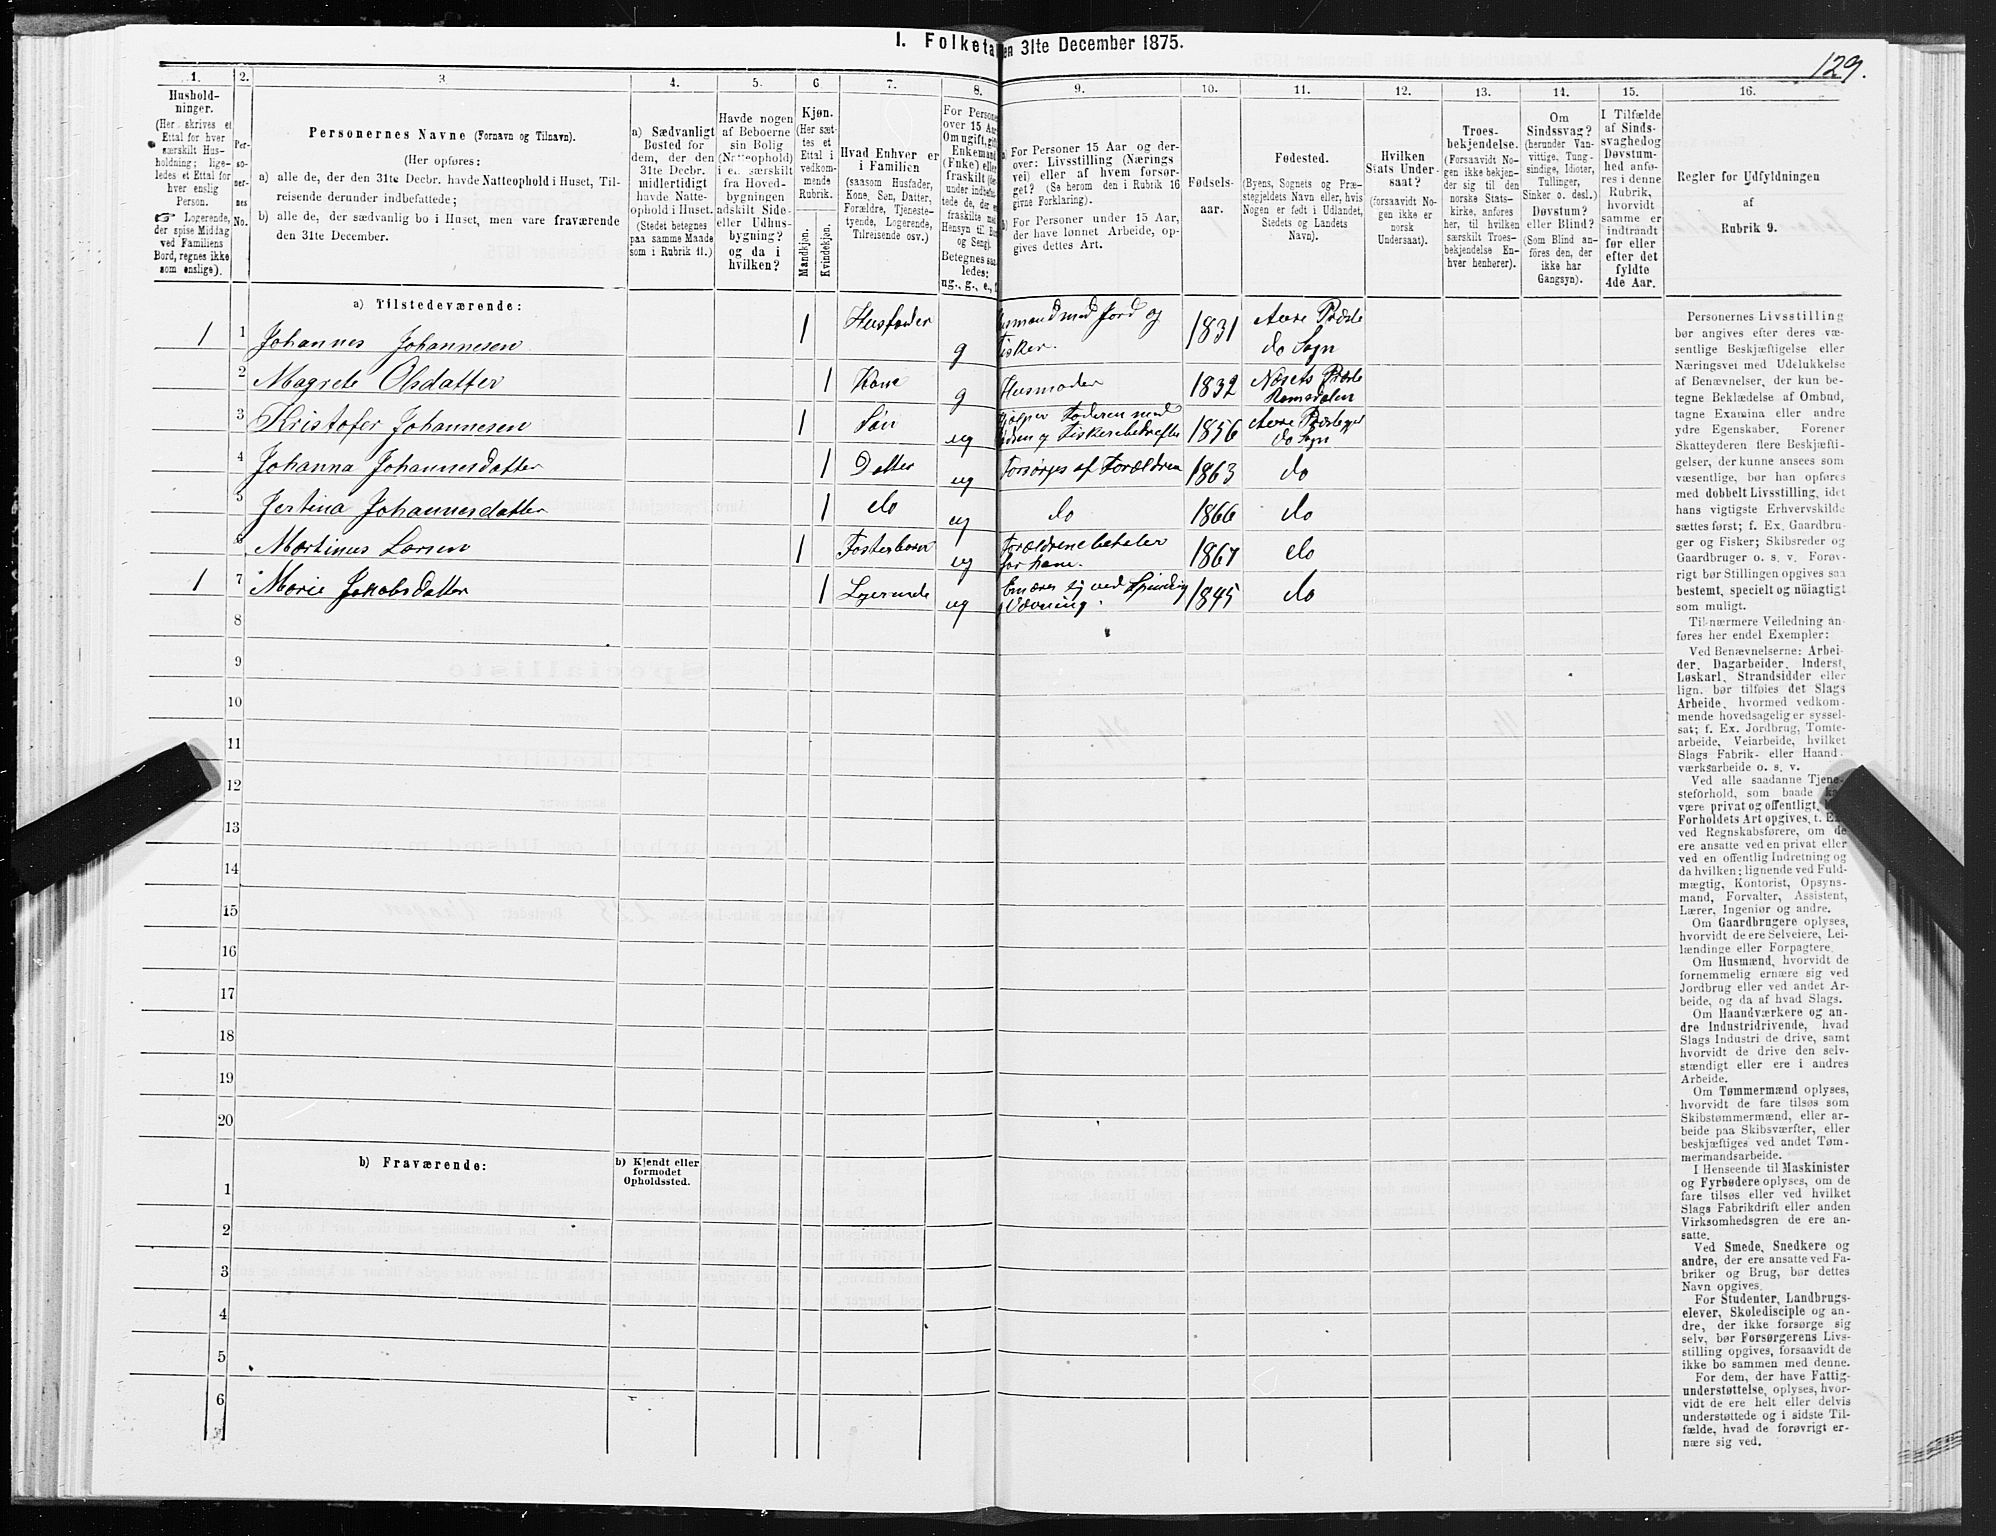 I. Folketa en 31te December 1875.
129.
1.
2.
3
4.
5.
6
7.
8.
9.
10.
11.
12.
13.
14.
15.
16.
Hushold-
ninger.
(Her skrives et
Ettal for hver
særskilt Hus-
holdning; lige-
ledes et Ettal for
hver enslig
Person.
Logerende,
der spise Middag
ved Familiens
Bord, regnes ikke
som enslige).
Per-
so-
ner-
nes
No.
Personernes Navne (Fornavn og Tilnavn).
(Her opføres:
a) alle de, der den 31te Decbr. havde Natteophold i Huset, Til-
reisende derunder indbefattede;
b) alle de, der sædvanlig bo i Huset, men vare fraværende
den 31te December.
a) Sædvanligt
Bosted for
dem, der den
31te Decbr.
midlertidigt
havde Natte-
ophold i Huset.
(Stedet betegnes
paa samme Maade
som i Rubrik 11.)
Havde nogen
af Beboerne
sin Bolig
(Natteophold)
i en særskilt
fra Hoved-
bygningen
adskilt Side-
eller Udhus-
bygning?
og da i
hvilken?
Kjøn.
(Her sæt-
tes et
Ettal i
vedkom-
mende
Rubrik.
Mandkjøn.
Kvindekjøn.
Hvad Enhver er
i Familien
(saasom Husfader,
Kone, Søn, Datter,
Forældre, Tjeneste-
tyende, Logerende,
Tilreisende osv.)
For Persone
over 15 Aar
Om ugift, gif
Enkemand
(Enke) elle
fraskilt
Betegnes saa
ledes:
ug., g., e., f
For Personer 15 Aar og der-
over: Livsstilling (Nærings
vei) eller af hvem forsør-
get? (Se herom den i Rubrik 16
givne Forklaring).
For Personer under 15 Aar,
der have lønnet Arbeide, op-
gives dettes Art.
Fødsels-
aar.
Fødested.
(Byens, Sognets og Præ-
stegjeldets Navn eller, hvis
Nogen er født i Udlandet,
Stedets og Landets
Navn).
Hvilken
Stats Under-
saat?
(forsaavidt No-
gen ikke er
norsk
Undersaat).
Troes-
bekjendelse.
(Forsaavidt No-
gen ikke bekjen-
der sig til den
norske Stats-
kirke, anføres
her, til hvilken
særskilt Troes-
bekjendelse En-
hver henhører).
Om
Sindssvag?
(herunder Van-
vittige, Tung-
sindige, Idioter,
Tullinger,
Sinker o. desl.)
Døvstum?
eller Blind?
(Som Blind an-
føres den, der
ikke har
Gangsyn).
I Tilfælde
af Sinds-
svaghed og
Døvstum-
hed anfø-
res i denne
Rubrik,
hvorvidt
samme er
indtraadt
før eller
efter det
fyldte
4de Aar.
Regler for Udfyldningen
af
Rubrik 9.
a) Tilstedeværende:
1 1 Johannes Johannesen 1 Husfader g usmand med Jord og Fisker. 1831 Aure Præste do Sogn
2 Magrete Olsdatter 1 Kone g Husmoder 1832 Næsets Præste Romsdalen
3 Kristofer Johannesen 1 Søn ug Hjælper Faderen med og Fiskeribedrifter 1856 Aure Præstegj do Sogn
4 Johanna Johannesdatter 1 Datter ug Forsørges af Forældren 1863 do
5 Jertina Johannesdatter 1 do ug do 1866 do
6 Martinus Larsen 1 Fosterbarn ug Forældrene betaler for ham. 1867 do
1 7 Marie Jakobsdatter 1 Logerende ug Ernærer sig ved Spinding Vævning. 1845 do
8
9
10
11
12
13
14
15
16
17
18
19
20
b) Fraværende:
b) Kjendt eller
formodet
Opholdssted.
1
2
3
4
5
6
Personernes Livsstilling
bør angives efter deres væ-
sentlige Beskjæftigelse eller
Næringsvei med Udelukkelse
af Benævnelser, der kun be-
tegne Beklædelse af Ombud,
tagne Examina eller andre
ydre Egenskaber. Forener
Skatteyderen flere Beskjæfti-
gelser, der kunne ansees som
væsentlige, bør han opføres
med dobbelt Livsstilling, idet
hans vigtigste Erhvervskilde
sættes først; f. Ex. Gaardbru-
ger og Fisker; Skibsreder og
Gaardbruger o. s. v. Forøv-
rigt bør Stillingen opgives saa
bestemt, specielt og nöiagtigt
som muligt.
Til nærmere Veiledning an-
føres her endel Exempler:
Ved Benævnelserne: Arbei-
der, Dagarbeider, Inderst,
Løskarl, Strandsidder eller
lign. bør tilføies det Slags
Arbeide, hvormed vedkom-
mende hovedsagelig er syssel-
sat; f. Ex. Jordbrug, Tomte-
arbeide, Veiarbeide, hvilket
Slags Fabrik- eller Haand-
værksarbeide o. s. v.
Ved alle saadanne Tjene-
steforhold, som baade
være privat og offentligt,
Forholdets Art opgives, t. E
ved Regnskabsførere, om de
ere ansatte ved en privat eller
ved en offentlig Indretning og
da hvilken; lignende ved Fuld-
mægtig, Kontorist, Opsyns-
mand, Forvalter, Assistent,
Lærer, Ingeniør og andre.
Om Gaardbrugere oplyses,
hvorvidt de ere Selveiere, Lei-
lændinge eller Forpagtere.
Om Husmænd, hvorvidt de
fornemmelig ernære sig ved
Jordbrug eller ved andet Ar-
beide, og da af hvad Slags.
Om Haandværkere og an-
dre Industridrivende, hvad
Slags Industri de drive, samt
hvorvidt de drive den selv-
stændigt eller ere i andres
Arbeide.
Om Tømmermænd oplyses,
hvorvidt de fare tilsøs som
Skibstømmermænd, eller ar-
beide paa Skibsværfter, eller
beskjæftiges ved andet Tøm-
mermandsarbeide.
I Henseende til Maskinister
og Fyrbødere oplyses, om de
fare tilsøs eller ved hvilket
Slags Fabrikdrift eller anden
Virksomhedsgren de ere an-
satte.
Ved Smede, Snedkere og
andre, der ere ansatte ved Fa-
briker og Brug, bør dettes
Navn opgives.
For Studenter, Landbrugs-
elever, Skoledisciple og an-
dre, der ikke forsørge sig
selv, bør Forsørgerens Livs-
stilling opgives, forsaavidt de
ikke bo sammen med denne.
For dem, der have Fattig-
understøttelse, oplyses, hvor-
vidt de ere helt eller delvis
understøttede og i sidste Til-
fælde, hvad de forøvrigt er-
nære sig ved.